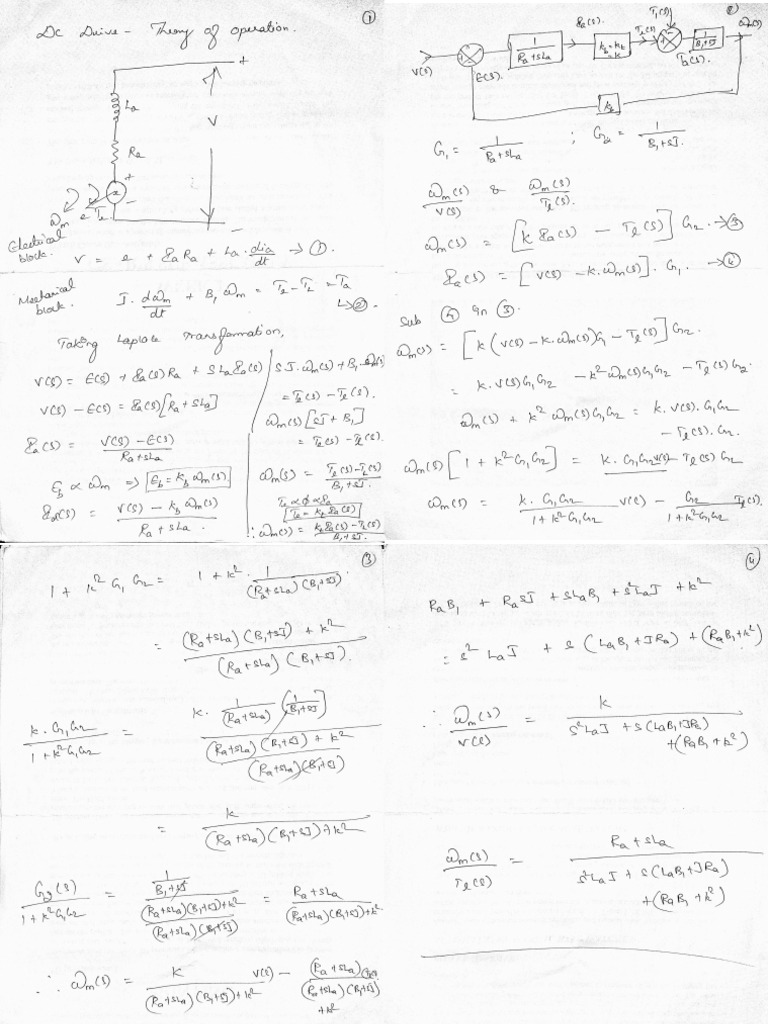 ①
DC Drive - Theory of operation.
+
La
Ra
V
+
-
ωm e Te
-
Electrical block.
V = e + ia Ra + La · dia/dt → ①
Mechanical block.
J · dωm/dt + B1 ωm = Te - TL = Ta → ②
Taking Laplace Transformation,
V(s) = E(s) + Ia(s) Ra + S La Ia(s)
V(s) - E(s) = Ia(s) [Ra + sLa]
Ia(s) = V(s) - E(s) / Ra + sLa
Eb ∝ ωm ⇒ Eb = kb ωm(s)
Ia(s) = V(s) - kb ωm(s) / Ra + sLa .
SJ. ωm(s) + B1 ωm(s)
= Te(s) - Tl(s).
ωm(s) [sJ + B1]
= Te(s) - Tl(s).
ωm(s) = Te(s) - Tl(s) / B1 + sJ.
Te ∝ φ ∝ Ia
Te = kt Ia(s)
∴ ωm(s) = kt Ia(s) - Tl(s) / B1 + sJ.
②
V(s) E(s). 1 / Ra + sLa Ia(s). kb = kt = k Te(s) Tl(s) Ta(s). 1 / B1 + sJ ωm(s)
kb
G1 = 1 / Ra + sLa ; G2 = 1 / B1 + sJ.
ωm(s) / V(s) & ωm(s) / Tl(s).
ωm(s) = [k Ia(s) - Tl(s)] G2 → ③
Ia(s) = [V(s) - k. ωm(s)]. G1 → ④
Sub ④ in ③.
ωm(s) = [k (V(s) - k. ωm(s)) G1 - Tl(s)] G2.
= k. V(s) G1 G2 - k² ωm(s) G1 G2 - Tl(s) G2.
ωm(s) + k² ωm(s) G1 G2 = k. V(s). G1 G2
- Tl(s). G2.
ωm(s) [1 + k² G1 G2] = k. G1 G2 V(s) - Tl(s) G2
ωm(s) = k. G1 G2 / 1 + k² G1 G2 V(s) - G2 / 1 + k² G1 G2 Tl(s).
③
1 + k² G1 G2 = 1 + k² · 1 / (Ra + sLa) (B1 + sJ).
= (Ra + sLa) (B1 + sJ) + k² / (Ra + sLa) (B1 + sJ).
k. G1 G2 / 1 + k² G1 G2 = k. 1 / (Ra + sLa) (1 / B1 + sJ) / (Ra + sLa) (B1 + sJ) + k² / (Ra + sLa) (B1 + sJ)
= k / (Ra + sLa) (B1 + sJ) + k²
G2(s) / 1 + k² G1 G2 = 1 / B1 + sJ / (Ra + sLa) (B1 + sJ) + k² / (Ra + sLa) (B1 + sJ) = Ra + sLa / (Ra + sLa) (B1 + sJ) + k²
∴ ωm(s) = k / (Ra + sLa) (B1 + sJ) + k² V(s) - (Ra + sLa) / (Ra + sLa) (B1 + sJ) + k² Tl(s)
④
RaB1 + RasJ + sLaB1 + s²LaJ + k²
= s² LaJ + s (LaB1 + JRa) + (RaB1 + k²)
∴ ωm(s) / V(s) = k / s² LaJ + s (LaB1 + JRa) + (RaB1 + k²)
ωm(s) / Tl(s) = Ra + sLa / s² LaJ + s (LaB1 + JRa) + (RaB1 + k²)